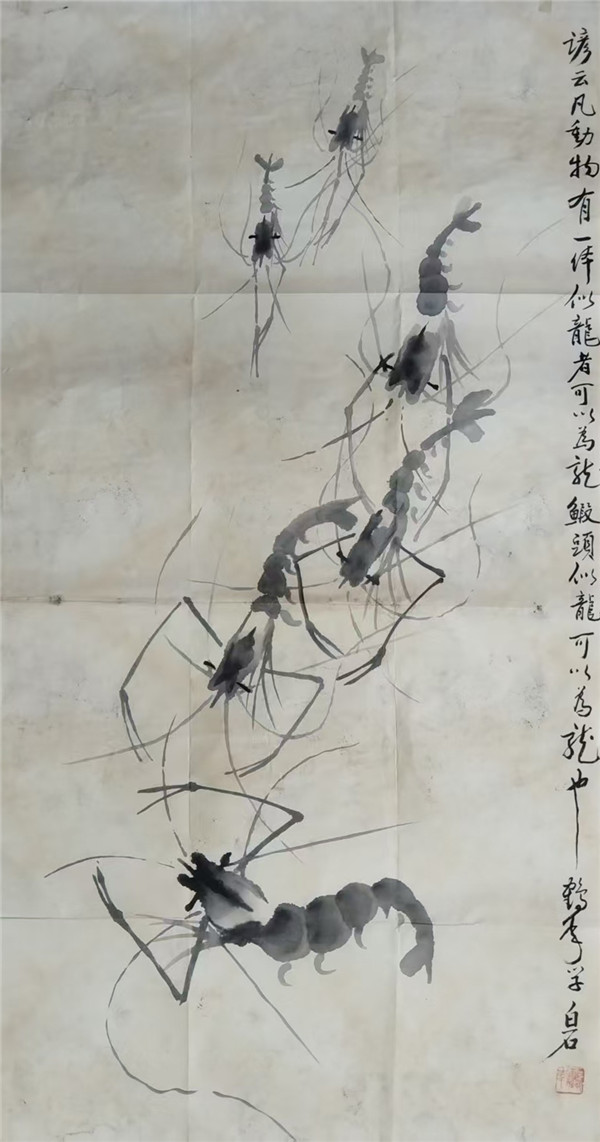 諺云凡動物有一体似龍者可以為龍鰕頭似龍可以為龍也鶴年学白石